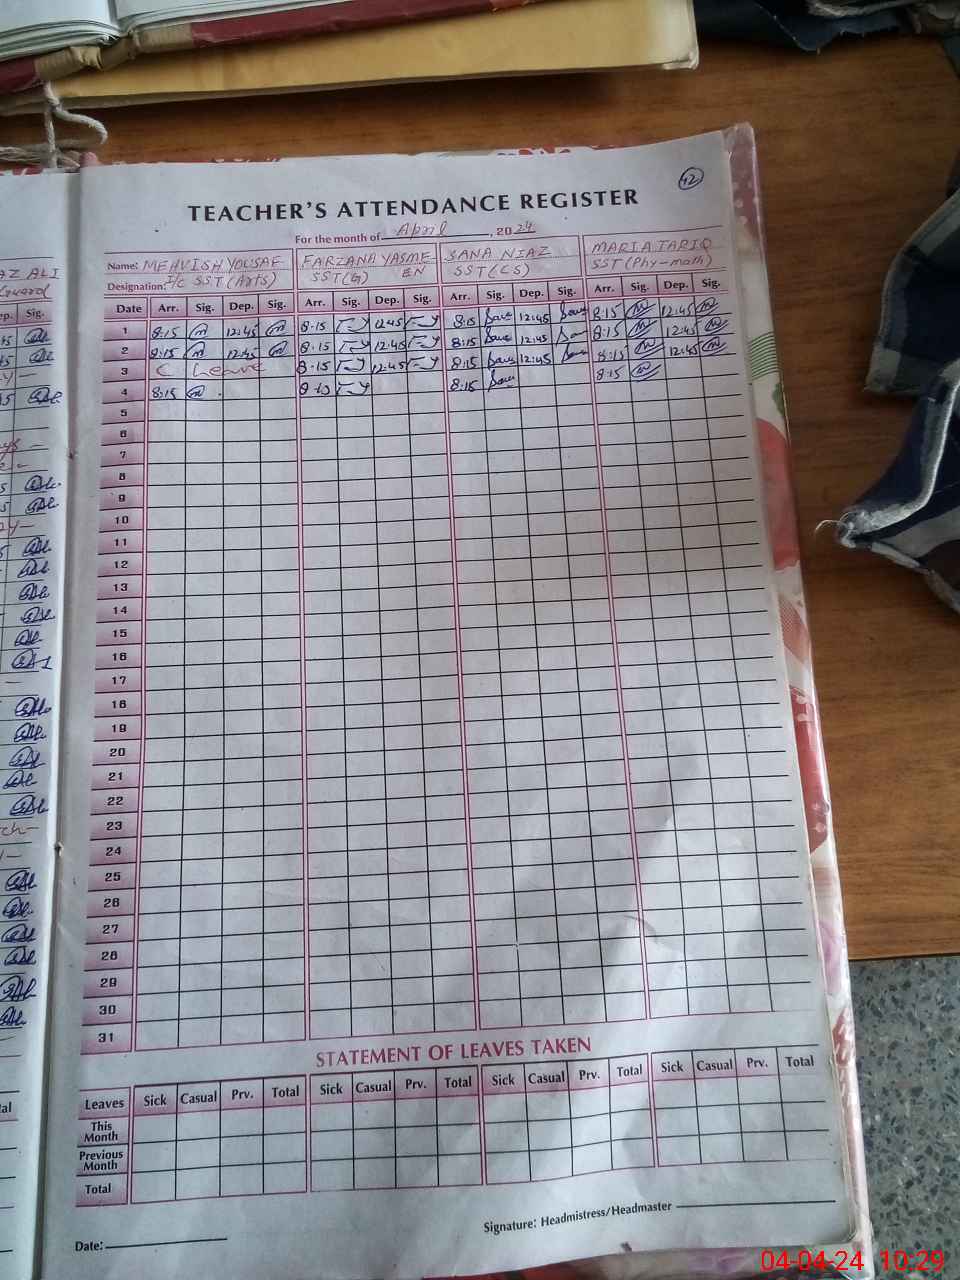 42
TEACHER'S ATTENDANCE REGISTER
For the month of April, 2024
AZ ALI
Guard
Name: MEHVISH YOUSAF FARZANA YASMEEN SANA NIAZ MARIA TARIQ
Designation: I/C S.S.T (Arts) SST(G) SST(CS) SST(Phy-math)
Date Arr. Sig. Dep. Sig. Arr. Sig. Dep. Sig. Arr. Sig. Dep. Sig. Arr. Sig. Dep. Sig.
1 8:15 12:45 8:15 12:45 8:15 12:45 8:15 12:45
2 8:15 12:45 8:15 12:45 8:15 12:45 8:15 12:45
3 C Leave 8:15 12:45 8:15 12:45 8:15 12:45
4 8:15 8:15 8:15 8:15
5
6
7
8
9
10
11
12
13
14
15
16
17
18
19
20
21
22
23
24
25
26
27
28
29
30
31
STATEMENT OF LEAVES TAKEN
Leaves Sick Casual Prv. Total Sick Casual Prv. Total Sick Casual Prv. Total Sick Casual Prv. Total
This Month
Previous Month
Total
Signature: Headmistress/Headmaster
Date:
04-04-24 10:29